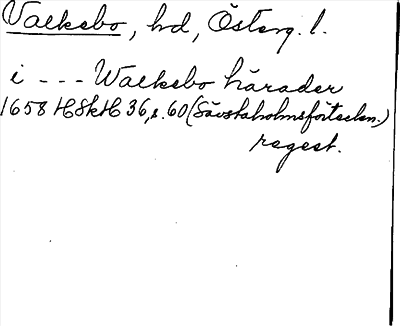 Valkebo, hd, Österg. l.
i --- Walkebo härader
1658 HSkH 36, s. 60 (Sävstaholmsförteckn.)
regest.